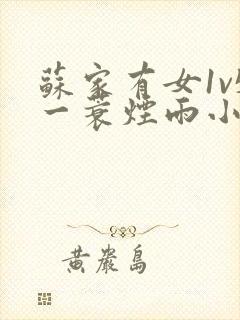 蘇家有女1v
一蓑煙雨小
黃巖島